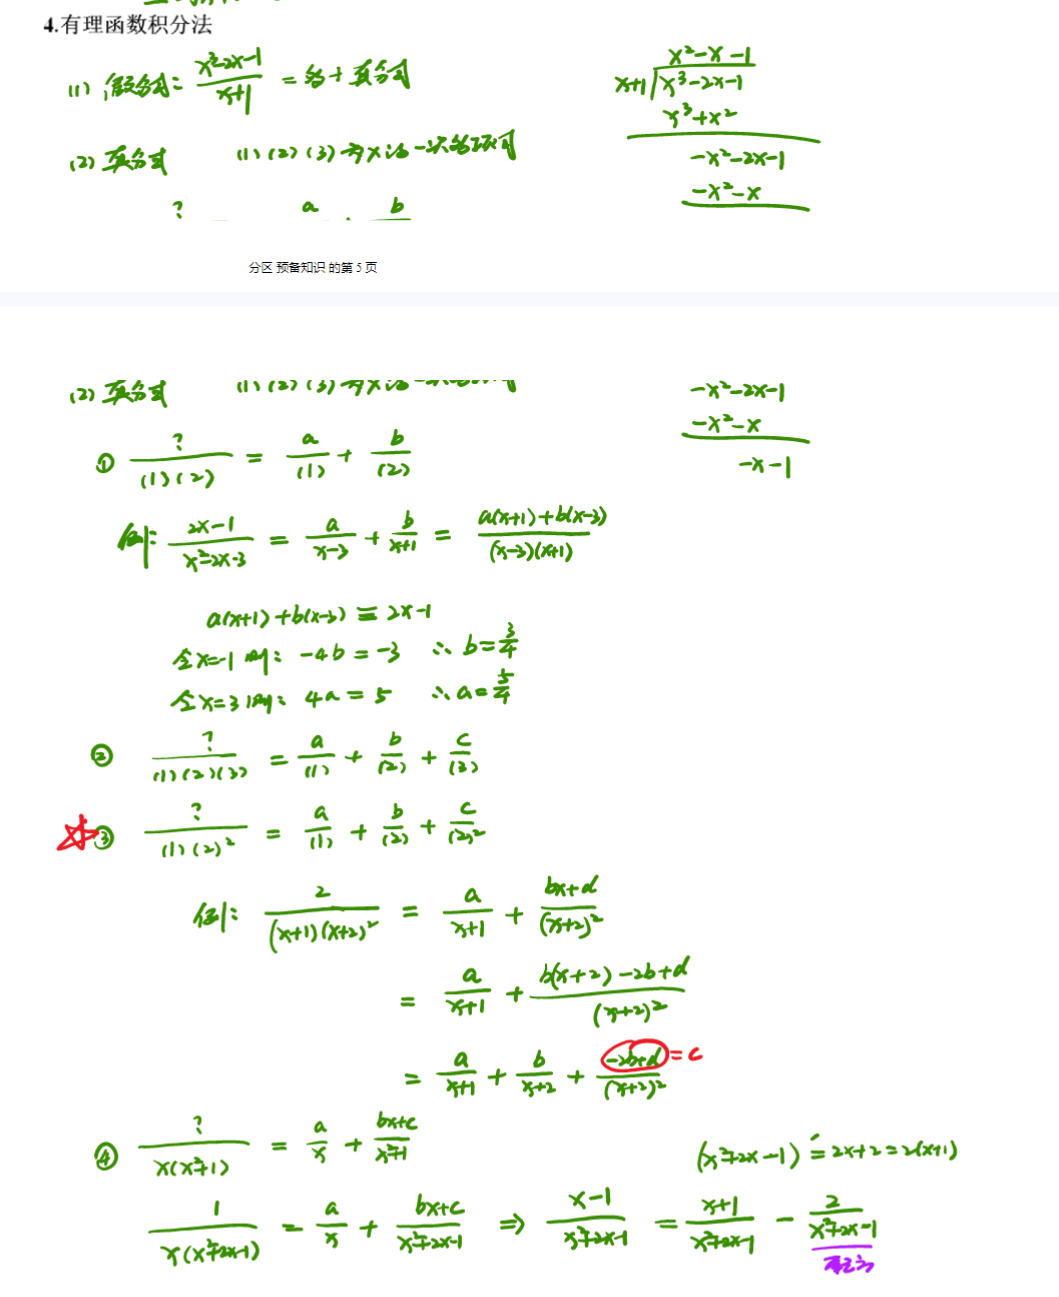 4.有理函数积分法
(1) 假分式: \frac{x^3-2x-1}{x+1} = 多+真分式
x+1 \overline{) x^3-2x-1}
x^2-x-1
x^3+x^2
-x^2-2x-1
-x^2-x
(2) 真分式 (1)(2)(3)为x的一次多项式
? a b
分区 预备知识 的第 5 页
(2) 真分式 (1)(2)(3)为x的一次多项式
-x^2-2x-1
-x^2-x
-x-1
① \frac{?}{(1)(2)} = \frac{a}{(1)} + \frac{b}{(2)}
例: \frac{2x-1}{x^2-2x-3} = \frac{a}{x-3} + \frac{b}{x+1} = \frac{a(x+1)+b(x-3)}{(x-3)(x+1)}
a(x+1)+b(x-3) ≡ 2x-1
令x=-1则: -4b=-3 ∴ b=\frac{3}{4}
令x=3则: 4a=5 ∴ a=\frac{5}{4}
② \frac{?}{(1)(2)(3)} = \frac{a}{(1)} + \frac{b}{(2)} + \frac{c}{(3)}
③ \frac{?}{(1)(2)^2} = \frac{a}{(1)} + \frac{b}{(2)} + \frac{c}{(2)^2}
例: \frac{2}{(x+1)(x+2)^2} = \frac{a}{x+1} + \frac{bx+d}{(x+2)^2}
= \frac{a}{x+1} + \frac{b(x+2)-2b+d}{(x+2)^2}
= \frac{a}{x+1} + \frac{b}{x+2} + \frac{-2b+d}{(x+2)^2} =c
④ \frac{?}{x(x^2+1)} = \frac{a}{x} + \frac{bx+c}{x^2+1}
(x^2+2x-1)' = 2x+2=2(x+1)
\frac{1}{x(x^2+2x-1)} = \frac{a}{x} + \frac{bx+c}{x^2+2x-1} ⇒ \frac{x-1}{x^2+2x-1} = \frac{x+1}{x^2+2x-1} - \frac{2}{x^2+2x-1}